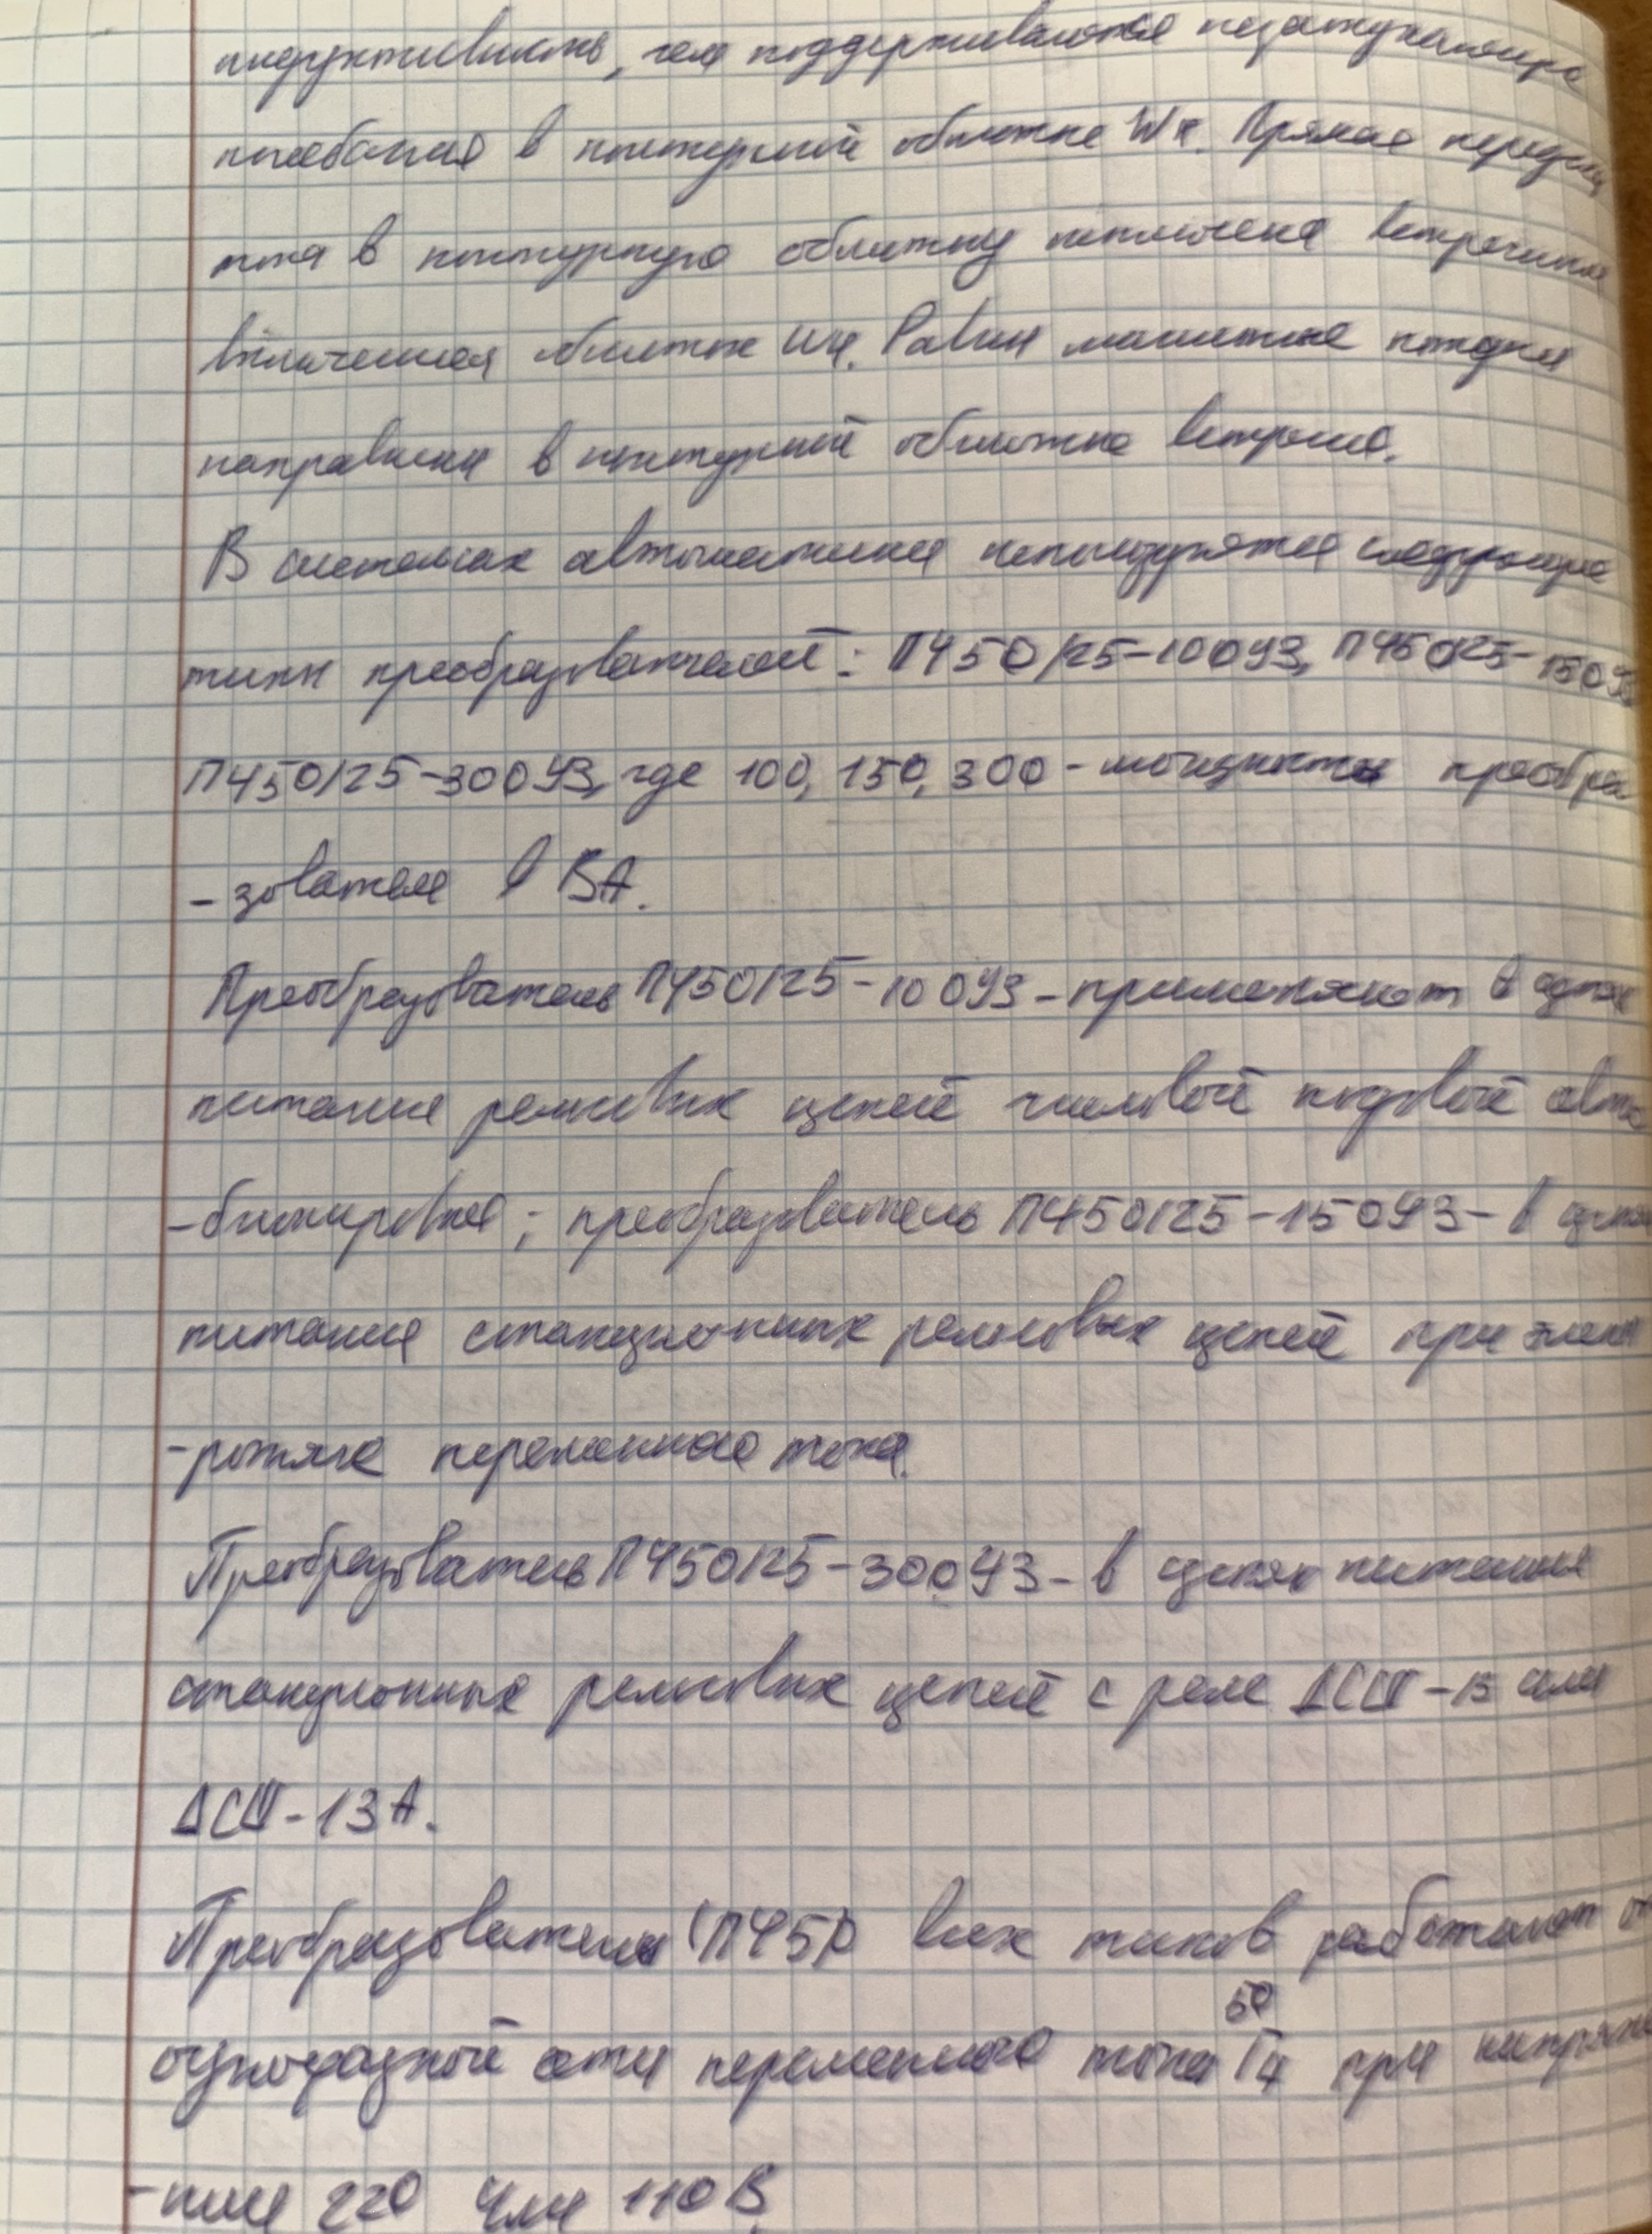 индуктивность, чем поддерживаются незатухающие
колебания в контурной обмотке Wк. Прямая передача
тока в контурную обмотку исключена встречно
включенная обмотке Wн. Равни магнитные потоки
направлены в контурной обмотке встречно.
В системах автоматики используются следующие
типы преобразователей: ПЧ50/25-100УЗ, ПЧ50/25-150УЗ,
ПЧ50/25-300УЗ, где 100, 150, 300 - мощность преобра
-зователя в ВА.
Преобразователь ПЧ50/25-100УЗ - применяют в цепях
питания рельсовых цепей числовой кодовой авто
-блокировки; преобразователь ПЧ50/25-150УЗ - в цепях
питания станционных рельсовых цепей при элект
-ротяге переменного тока.
Преобразователь ПЧ50/25-300УЗ - в цепях питания
станционных рельсовых цепей с реле ДСШ-13 или
ДСШ-13А.
Преобразователи (ПЧ50) всех типов работают от
однофазной сети переменного тока 50 Гц при напряже
-нии 220 или 110 В.